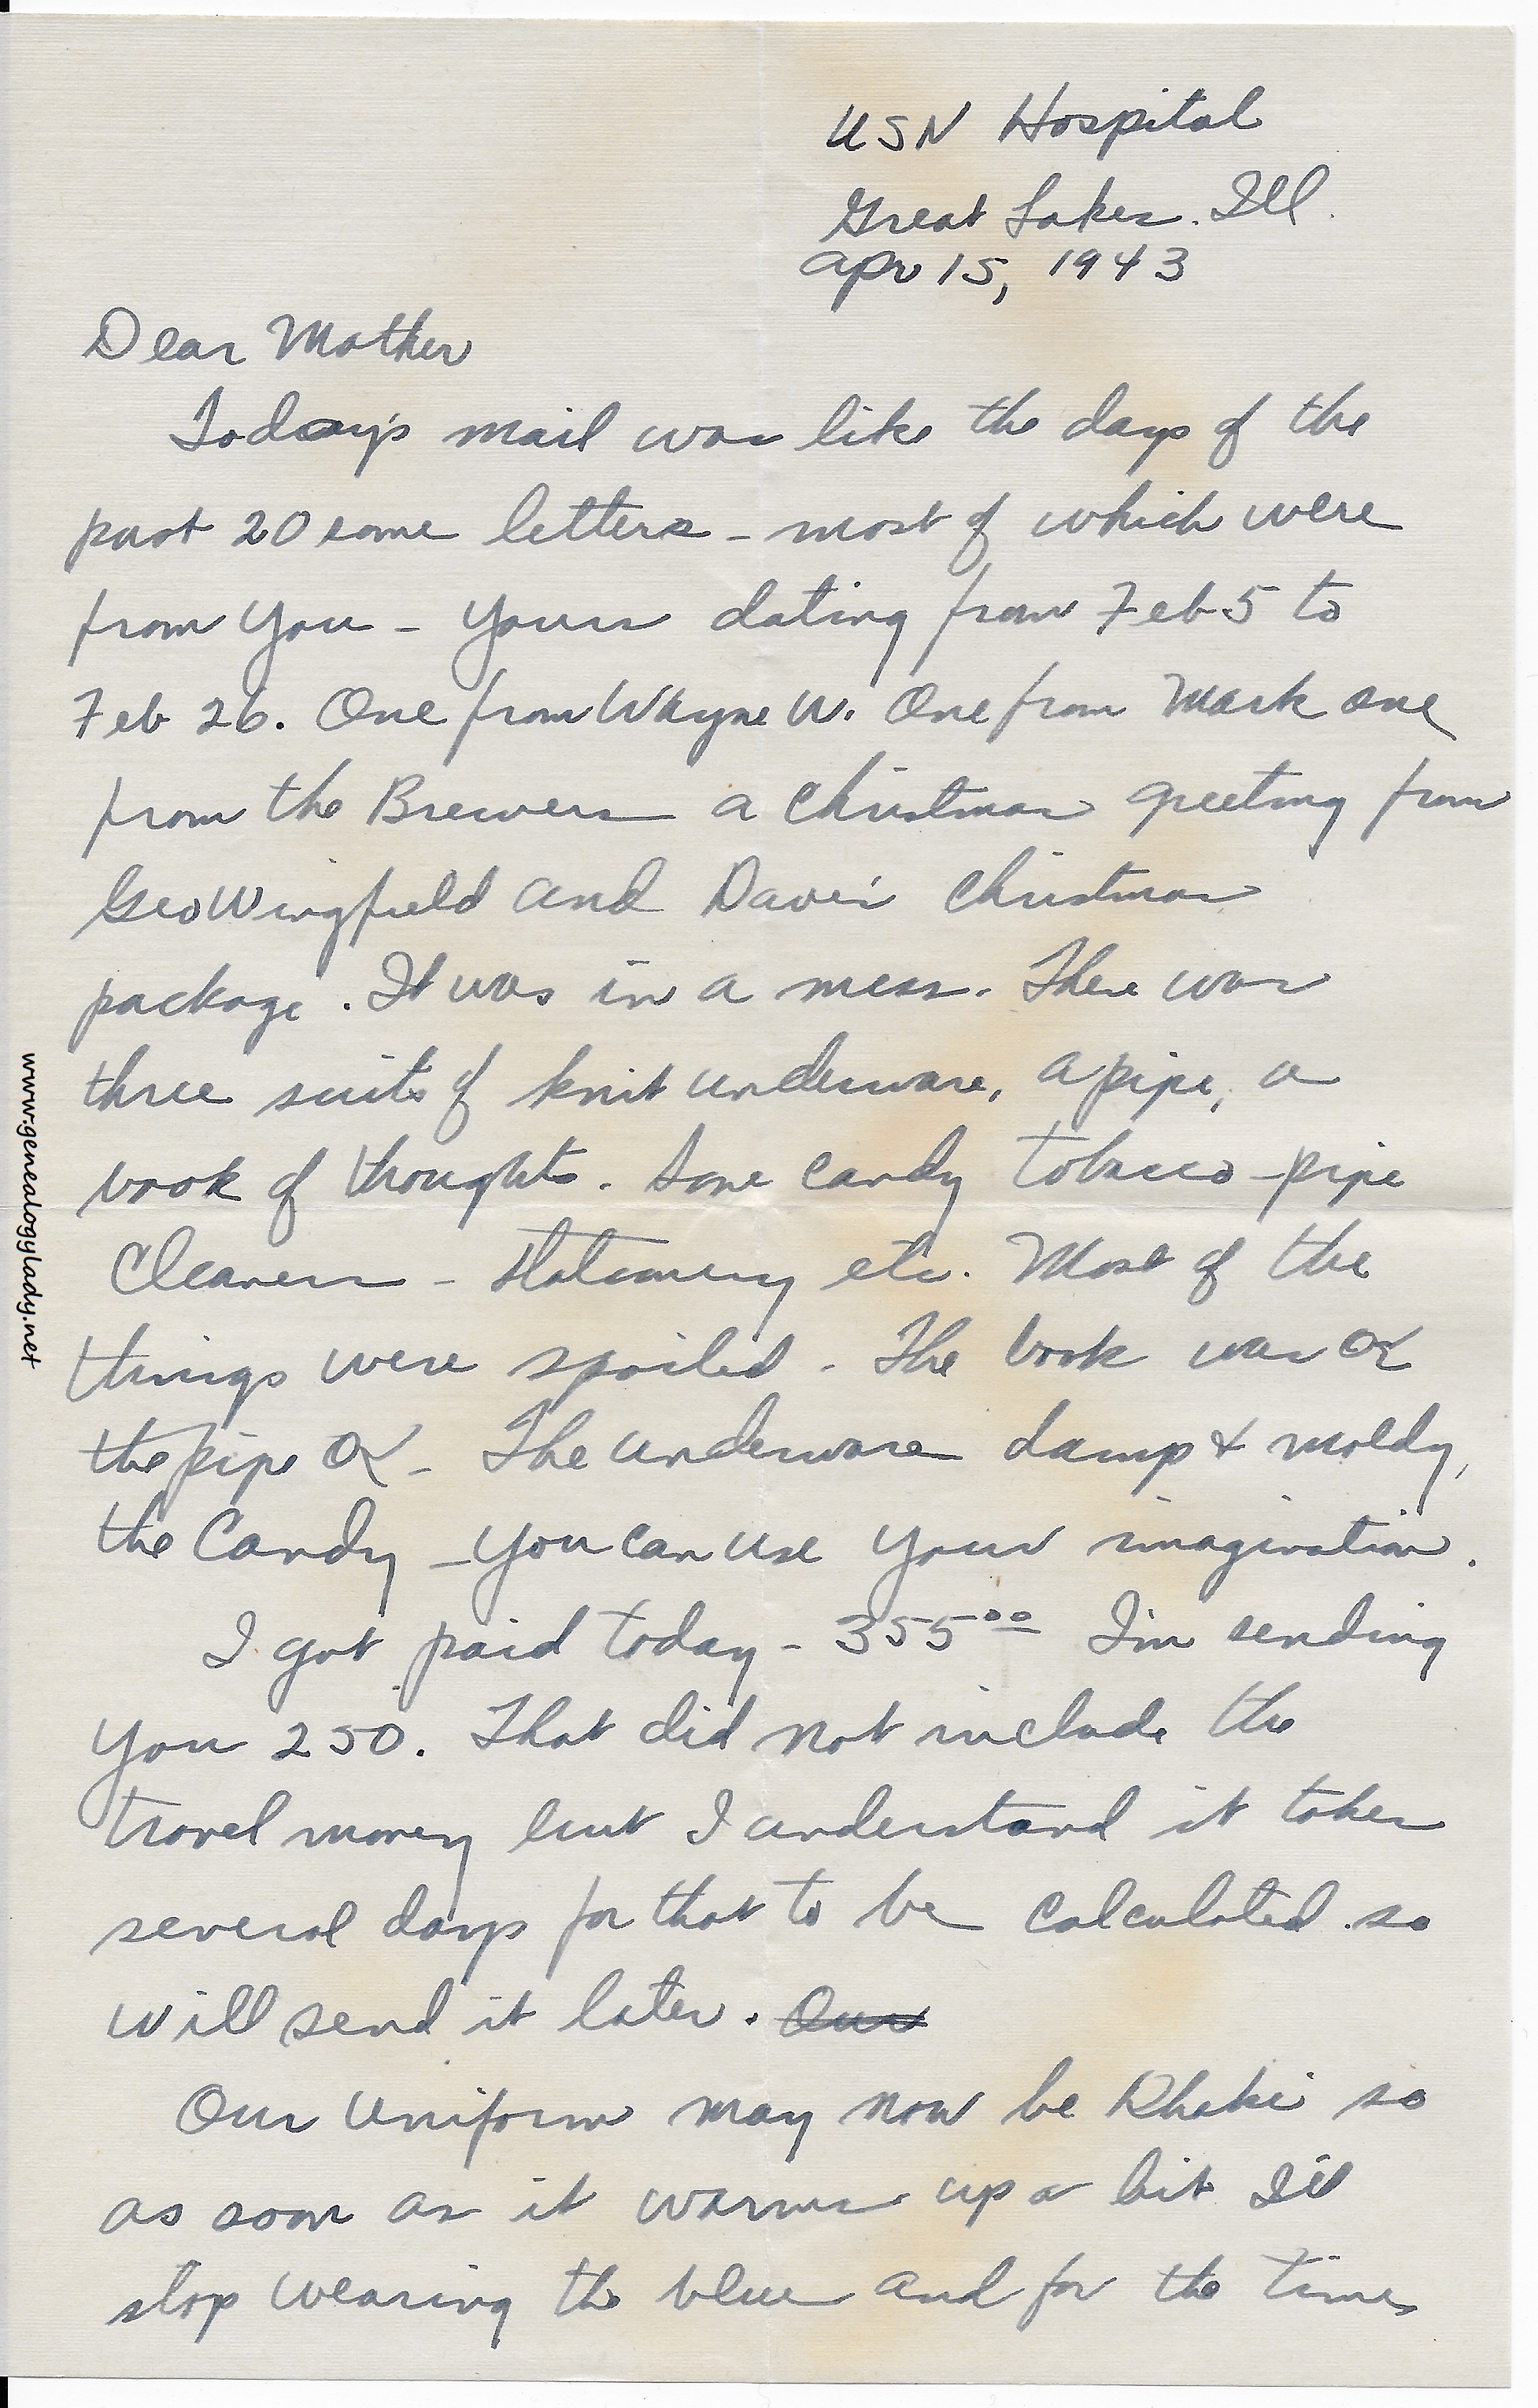 USN Hospital
Great Lakes. Ill.
Apr 15, 1943
Dear Mother
Today's mail was like the days of the
past 20 some letters - most of which were
from you - yours dating from Feb 5 to
Feb 26. One from Wayne W. One from Mark one
from the Brewers a Christmas greeting from
Geo Wingfield and Dave's Christmas
package. It was in a mess. There was
three suits of knit underware, a pipe, a
book of thoughts. Some candy tobacco - pipe
Cleaners - stationery etc. Most of the
things were spoiled. The book was OK
the pipe OK - The underware damp & moldy,
the Candy - you can use your imagination.
I got paid today - 355 00 I'm sending
you 250. That did not include the
travel money but I understand it takes
several days for that to be calculated so
will send it later. Our
Our uniform may now be Khaki so
as soon as it warms up a bit I'll
stop wearing the blue and for the time
www.genealogylady.net